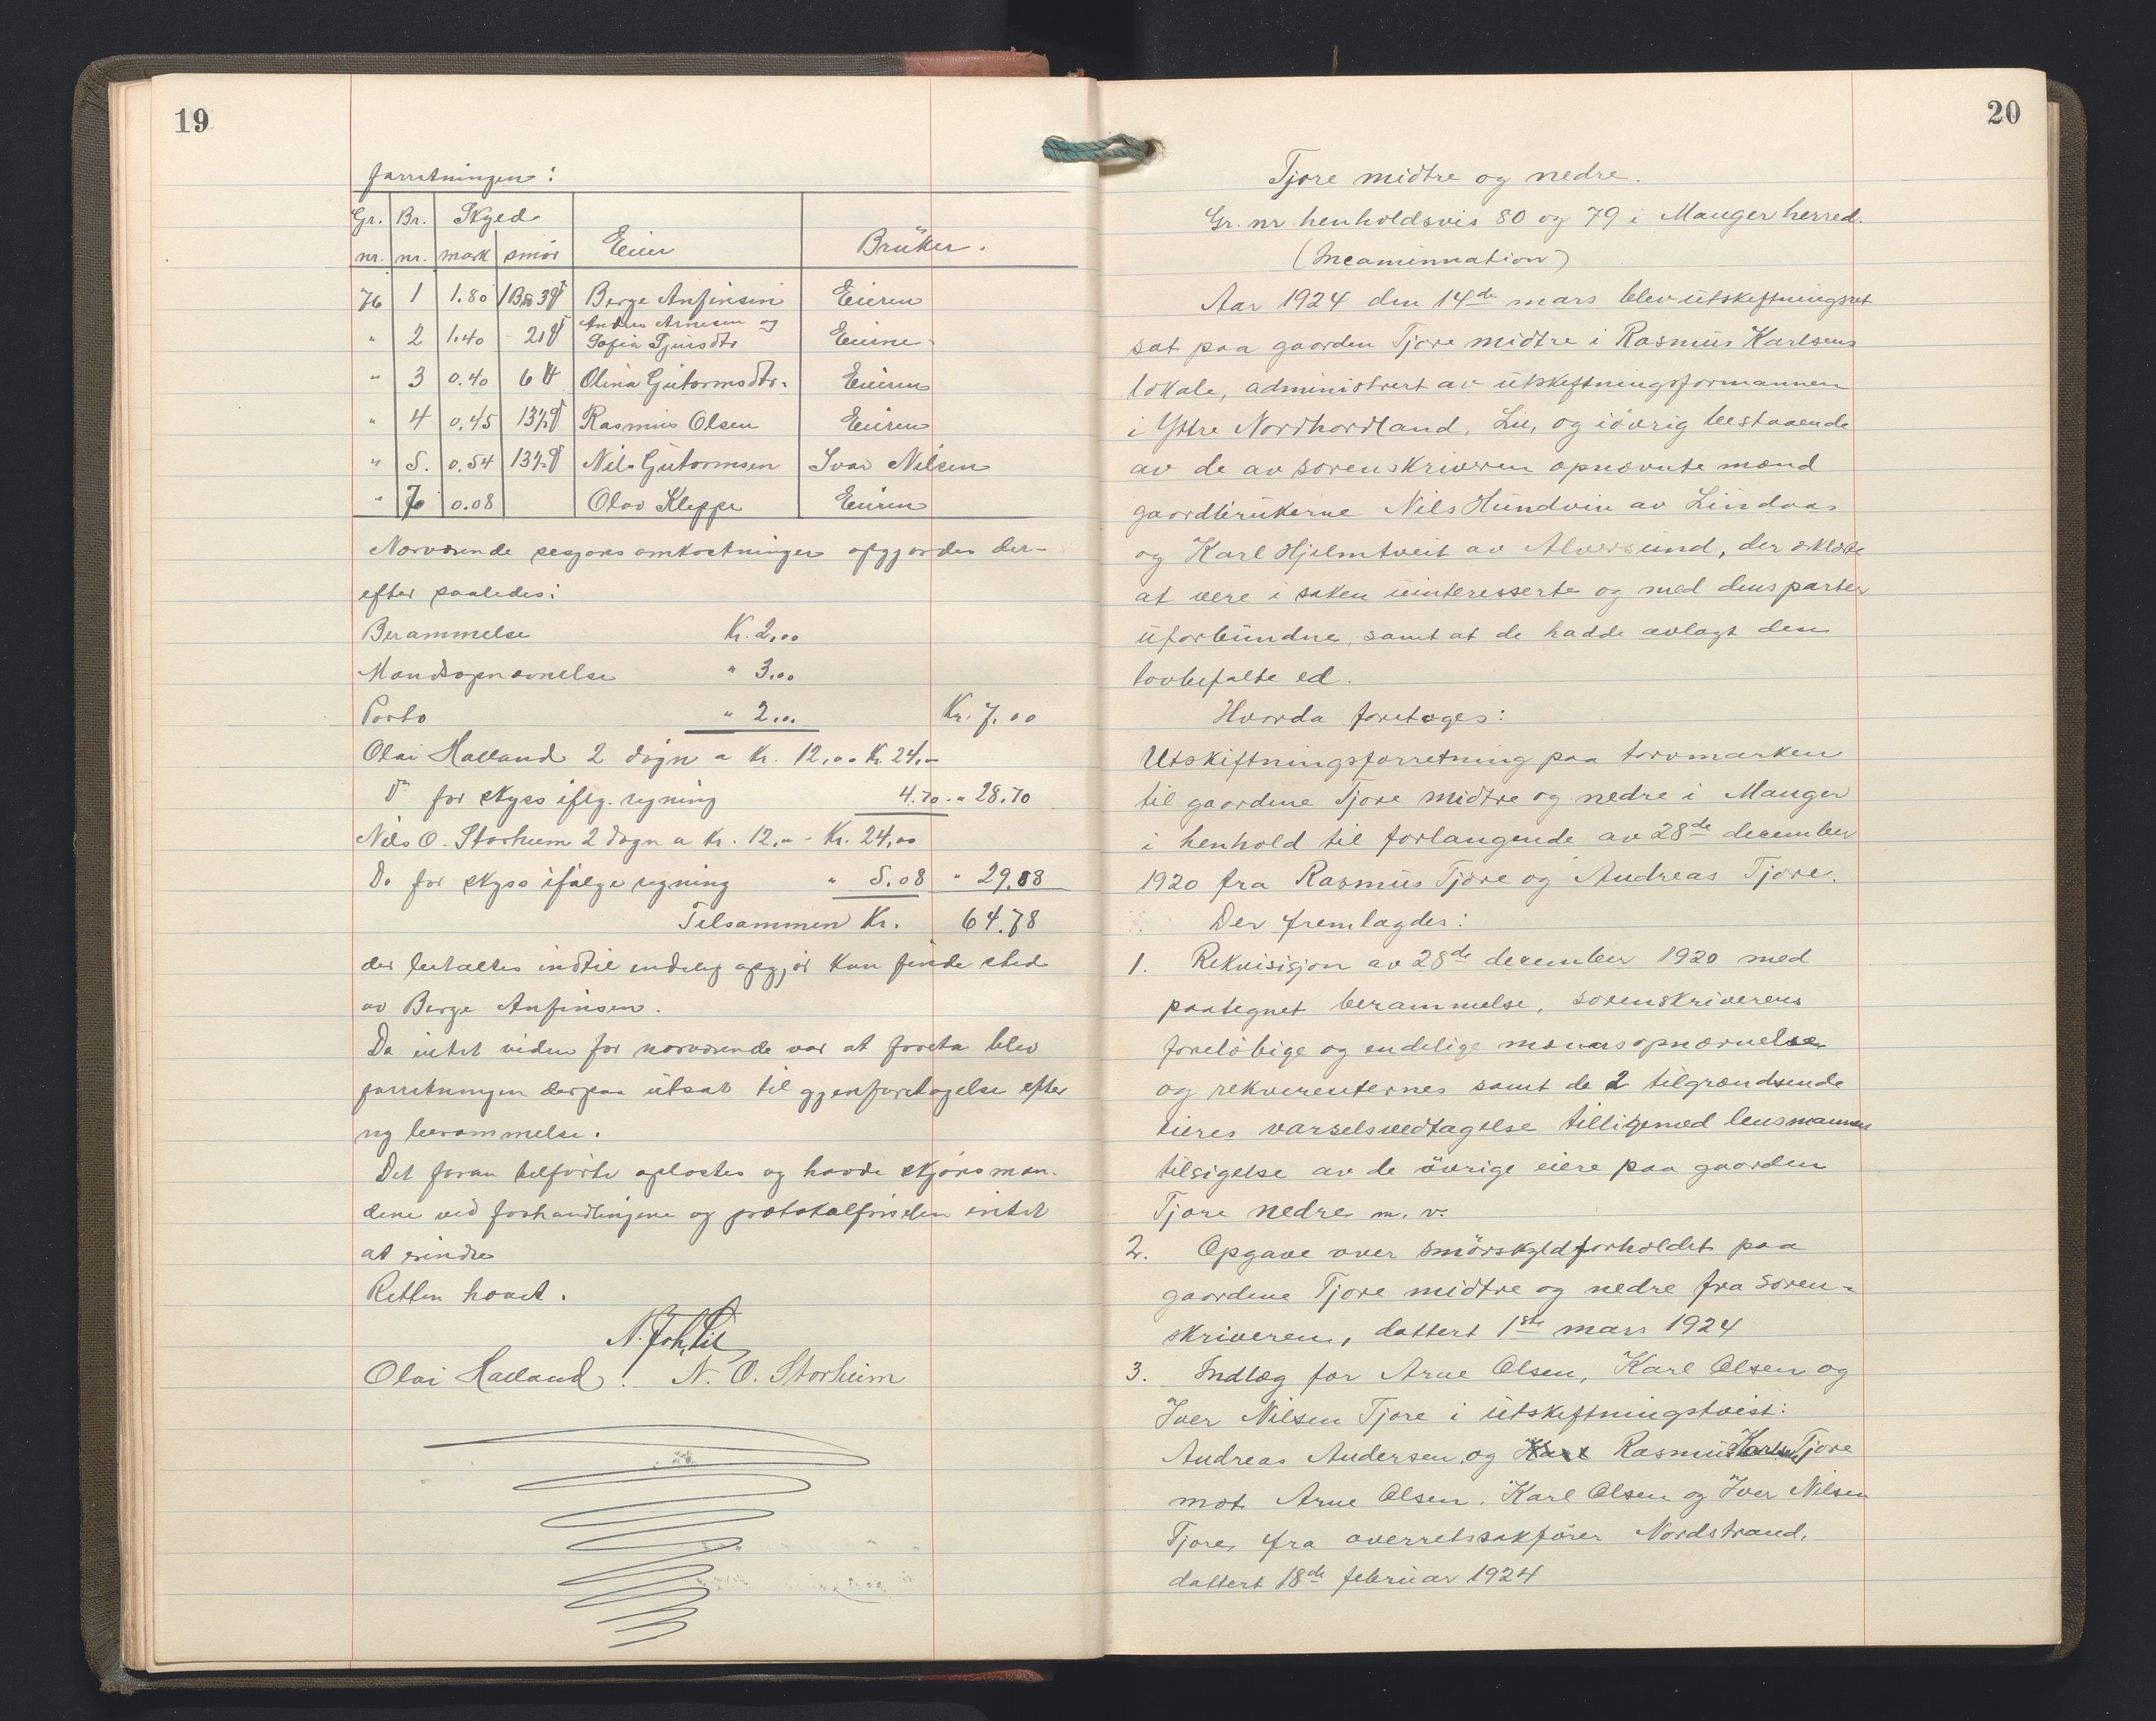 19
forretningen:
Gr. nr. Br. nr. Skyld mark smør Eier Brüker.
76 1 1.80 Berge Anfinsen Eieren
" 2 1.40 Andreas Arnesen og Sofia Eierne
" 3 0.40 6 Olina Gutormsdtr. Eieren
" 4 0.45 13½ Rasmus Olsen Eieren
" 5. 0.54 13½ Nils Gutormsen Ivar Nilsen
" 0.08 Olav Kleppe Eieren
Nærværende sesjons omkostninger opgjordes der-
efter saaledes:
Berammelse Kr. 2,00
Mandsopnævnelse " 3,00
Porto " 2,00 Kr. 7,00
Olai Halland 2 døgn a Kr. 12,00 Kr. 24,00
D° for skyss iflg. regning 4.70 " 28.70
Nils O. Storheim 2 døgn a Kr. 12,00 - Kr. 24,00
Do for skyss ifølge regning " 5.08 " 29.08
Tilsammen Kr. 64.78
der betaltes indtil endelig opgjør kan finde sted
av Berge Anfinsen.
Da intet videre for nærværende var at foreta blev
forretningen derpaa utsat til gjenforetagelse efter
ny berammelse.
Det foran tilførte oplæstes og havde skjønsmæn-
dene ved forhandlingene og protokolførselen intet
at erindre
Retten hævet.
Olai Halland. N. O. Storheim
20
Tjore midtre og nedre.
Gr. nr henholdsvis 80 og 79 i Manger herred.
Aar 1924 den 14de mars blev utskiftningsret
sat paa gaarden Tjore midtre i Rasmus Karlsens
lokale, administrert av utskiftningsformannen
i Ytre Nordhordland, Lie, og iøvrig bestaaende
av de av sorenskriveren opnævnte mænd
gaardbrukerne Nils Hundvin av Lindaas
og Karl Hjelmtveit av Alversund, der erklærte
at være i saken uinteresserte og med dens parter
uforbundne, samt at de hadde avlagt den
lovbefalte ed.
Hvorda foretoges:
Utskiftningsforretning paa torvmarken
til gaardene Tjore midtre og nedre i Manger
i henhold til forlangende av 28de december
1920 fra Rasmus Tjore og Andreas Tjore.
Der fremlagdes:
1. Rekvisisjon av 28de december 1920 med
paategnet berammelse, sorenskriverens
foreløbige og endelige mandsopnævnelse
og rekvirenternes samt de 2 tilgrændsende
eieres varselsvedtagelse tilligemed lensmannens
tilsigelse av de øvrige eiere paa gaarden
Tjore nedre m. v.
2. Opgave over smørskyldforholdet paa
gaardene Tjore midtre og nedre fra soren-
skriveren, dattert 1ste mars 1924
3. Indlæg for Arne Olsen, Karl Olsen og
Iver Nilsen Tjore i utskiftningstvist:
Andreas Andersen og Rasmus Karlsen Tjore
mot Arne Olsen, Karl Olsen og Iver Nilsen
Tjore, fra overretssakfører Nordstrand,
dattert 18de februar 1924